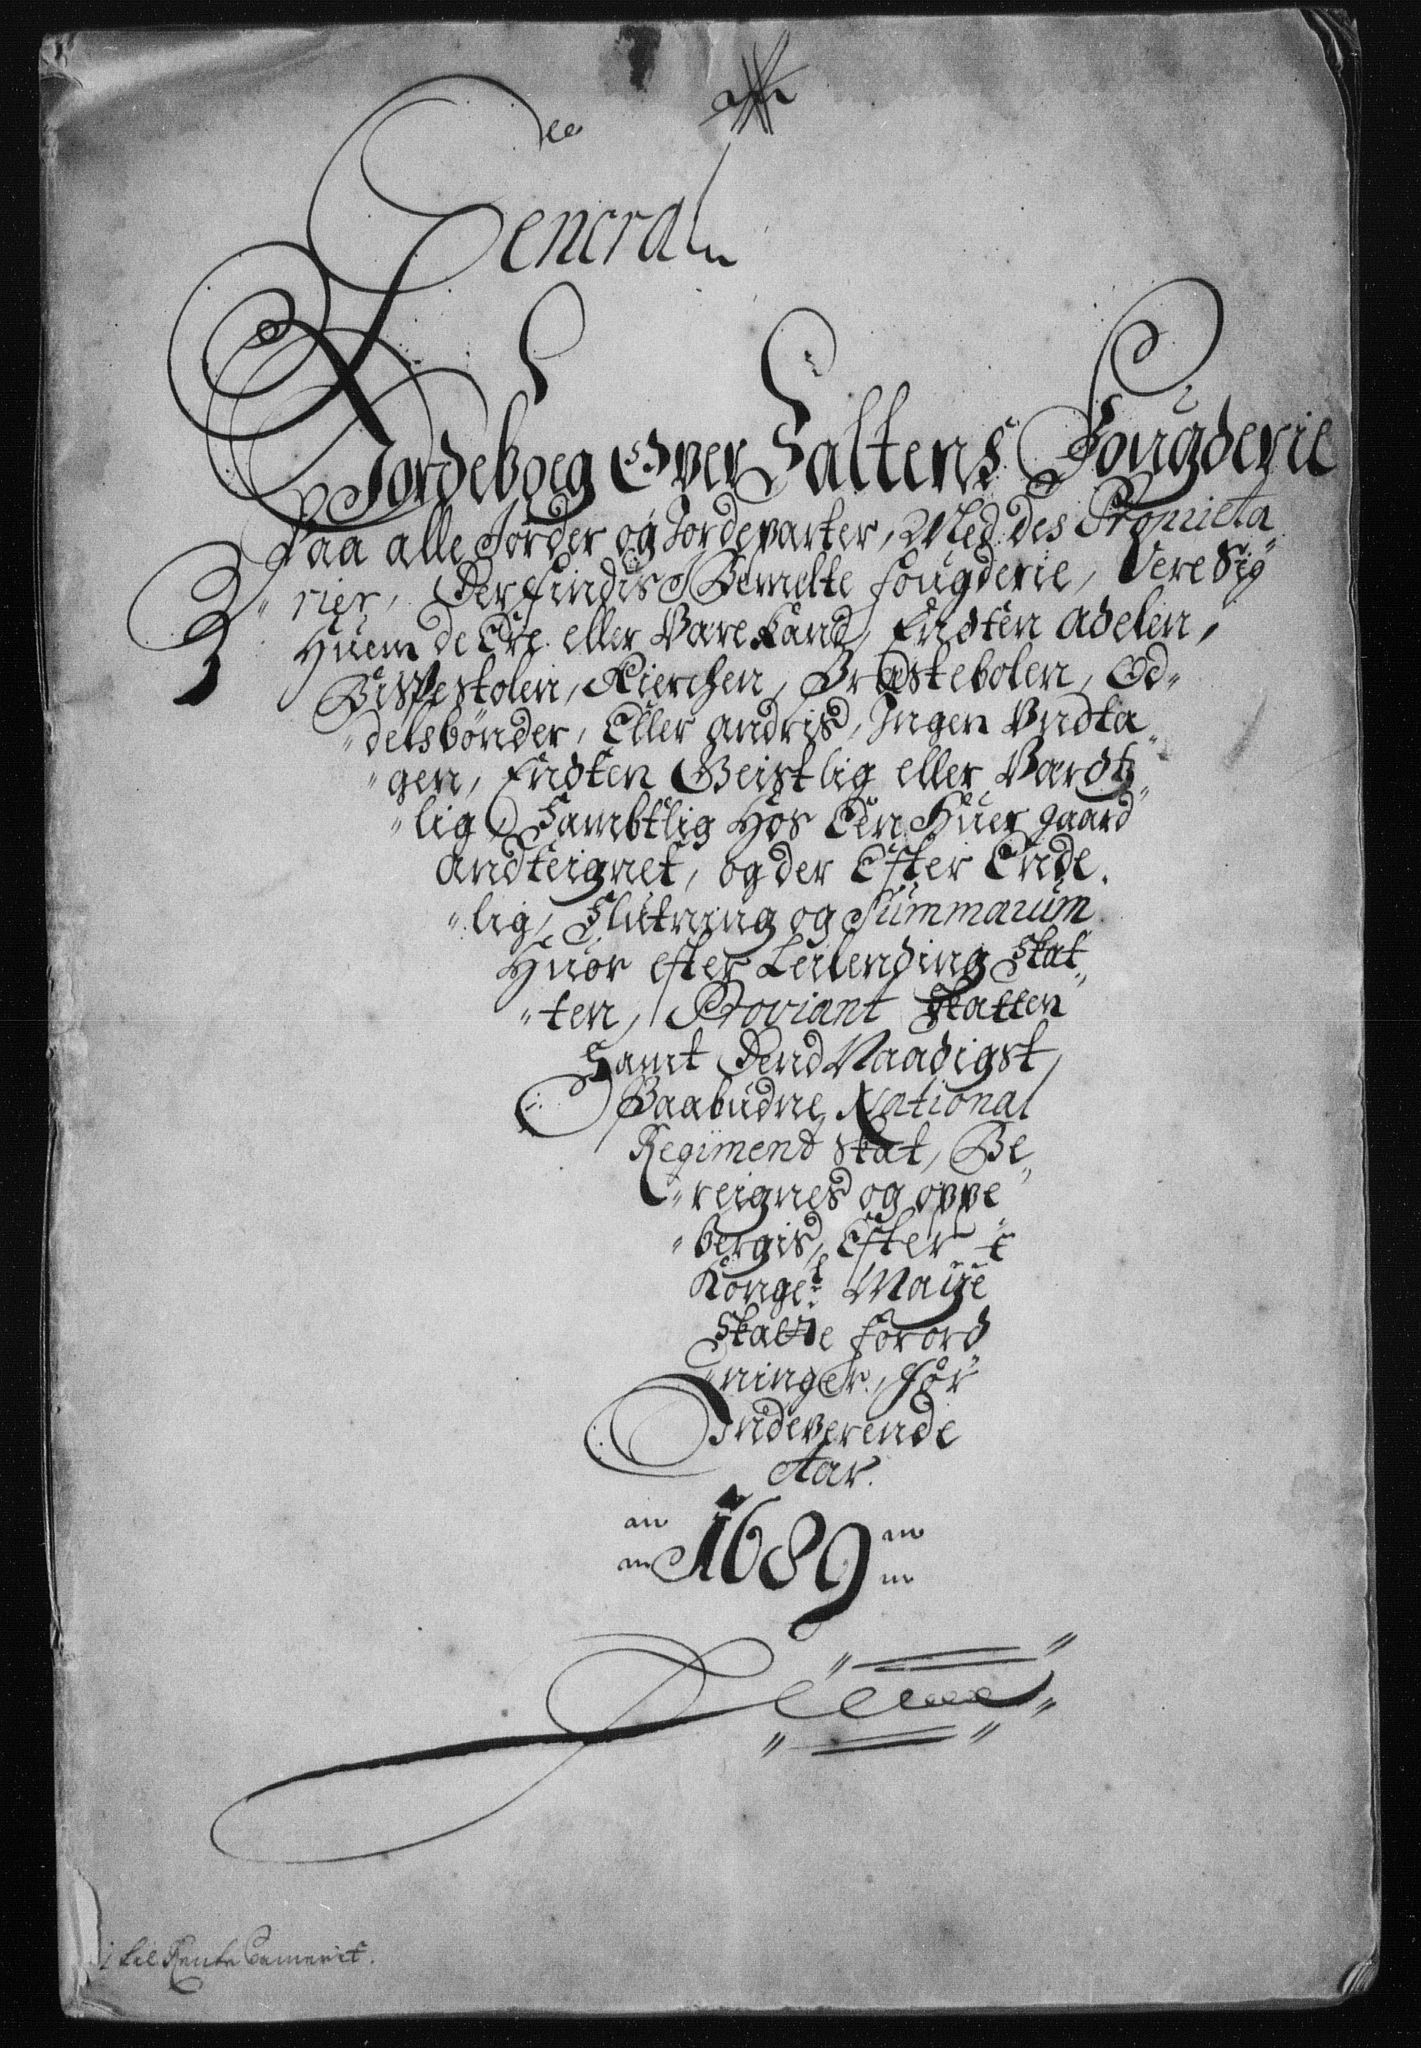 General
Jordeboeg Over Saltens Fougderie
Paa alle Jorder og Jordeparter, Med des Proprieta„
„rier, der findis J Bemelte fougderie, Vere Sig
Huem de Ere eller Vare Kand, Endten Adelen,
Bispestolen, Kierchen, Præstebolen, Od„
„delsbønder, Eller andris, Ingen Undta„
„gen, Endten Geistlig eller Verdtz„
„lig, Sambtlig Hos Een Huer gaard
andteignet, og der Efter Ende„
„lig, Slutning og Summarum
Huor efter Leilending Skat„
„ten, Proviant Skatten
Samt Dend Naadigst
Paabudne National
Regiment Skat, Be„
„reignes og oppe„
„bergis, Efter
Kongel: Mayts
Skatte forord„
„ninger, for
Indeverende
Aar.
1689
j til Rente Cameret.